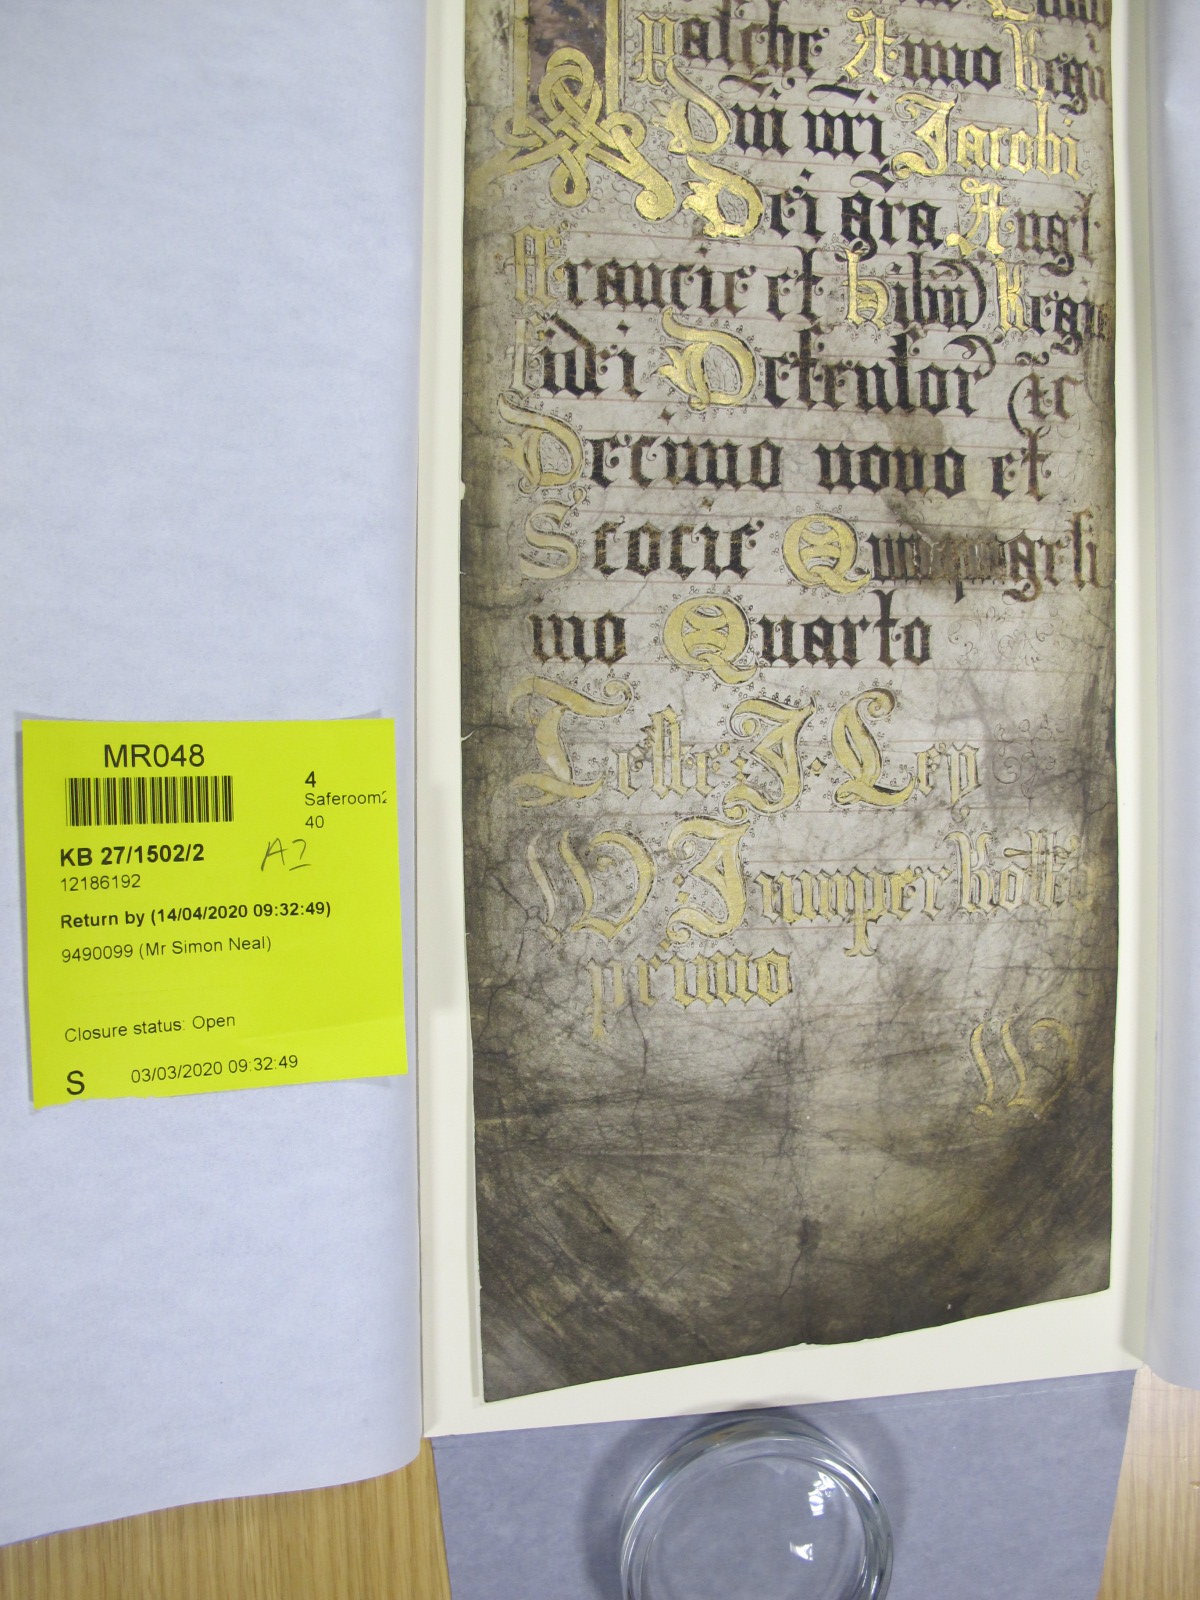 pasche Anno Regni
Dni nri Jacobi
Dei gra Angl
Francie et Hibnie Regis
fidei Defensor &c
Decimo nono et
Scocie Quinquagesi
mo Quarto
Teste J Ley
W Jumper Rotlo
primo
W
MR048
4
Saferoom2
40
KB 27/1502/2
A?
12186192
Return by (14/04/2020 09:32:49)
9490099 (Mr Simon Neal)
Closure status: Open
S 03/03/2020 09:32:49